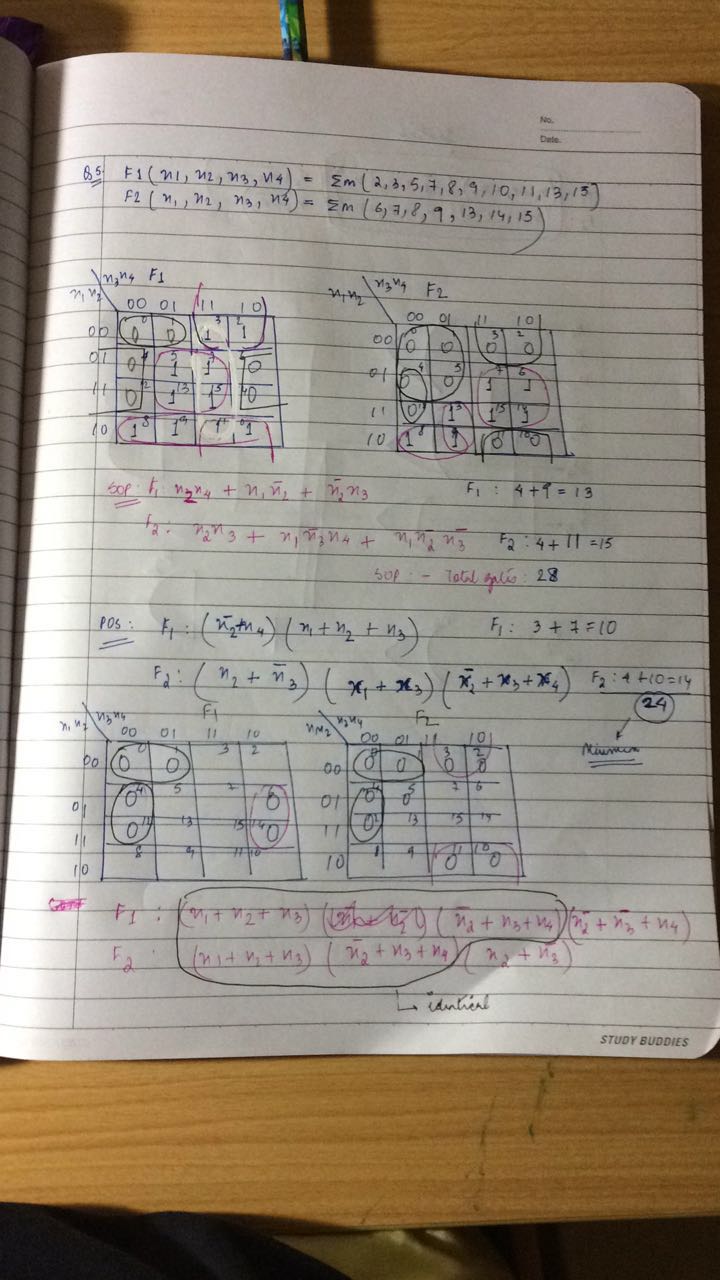 No.
Date.
Q5 F1(x1, x2, x3, x4) = Σm (2,3,5,7,8,9,10,11,13,15)
F2(x1, x2, x3, x4) = Σm (6,7,8,9,13,14,15)
x3x4 F1
x1x2
00 01 11 10
00 0 0 1 1
01 0 1 1 0
11 0 1 1 0
10 1 1 1 1
x3x4 F2
x1x2
00 01 11 10
00 0 0 0 0
01 0 0 1 1
11 0 1 1 1
10 1 1 0 0
SOP: F1: x2x4 + x1x̄2 + x̄2x3 F1 : 4+9 = 13
F2: x2x3 + x1x̄3x4 + x1x̄2x̄3 F2 : 4+11 = 15
SOP :- Total gates: 28
POS: F1 : (x̄2+x4) (x1+x2+x3) F1 : 3+7=10
F2 : (x2+x̄3) (x1+x3) (x̄2+x3+x4) F2 : 4+10=14
24
x3x4 F1
x1x2
00 01 11 10
00 0 0 3 2
01 0 5 7 0
11 0 13 15 0
10 8 9 11 10
x3x4 F2
x1x2
00 01 11 10
00 0 0 0 0
01 0 0 7 6
11 0 13 15 14
10 8 9 0 0
F1 : (x1+x2+x3) (x̄2+x3+x4) (x̄2+x̄3+x4)
F2 : (x1+x2+x3) (x̄2+x3+x4) (x2+x̄3)
↳ identical
STUDY BUDDIES